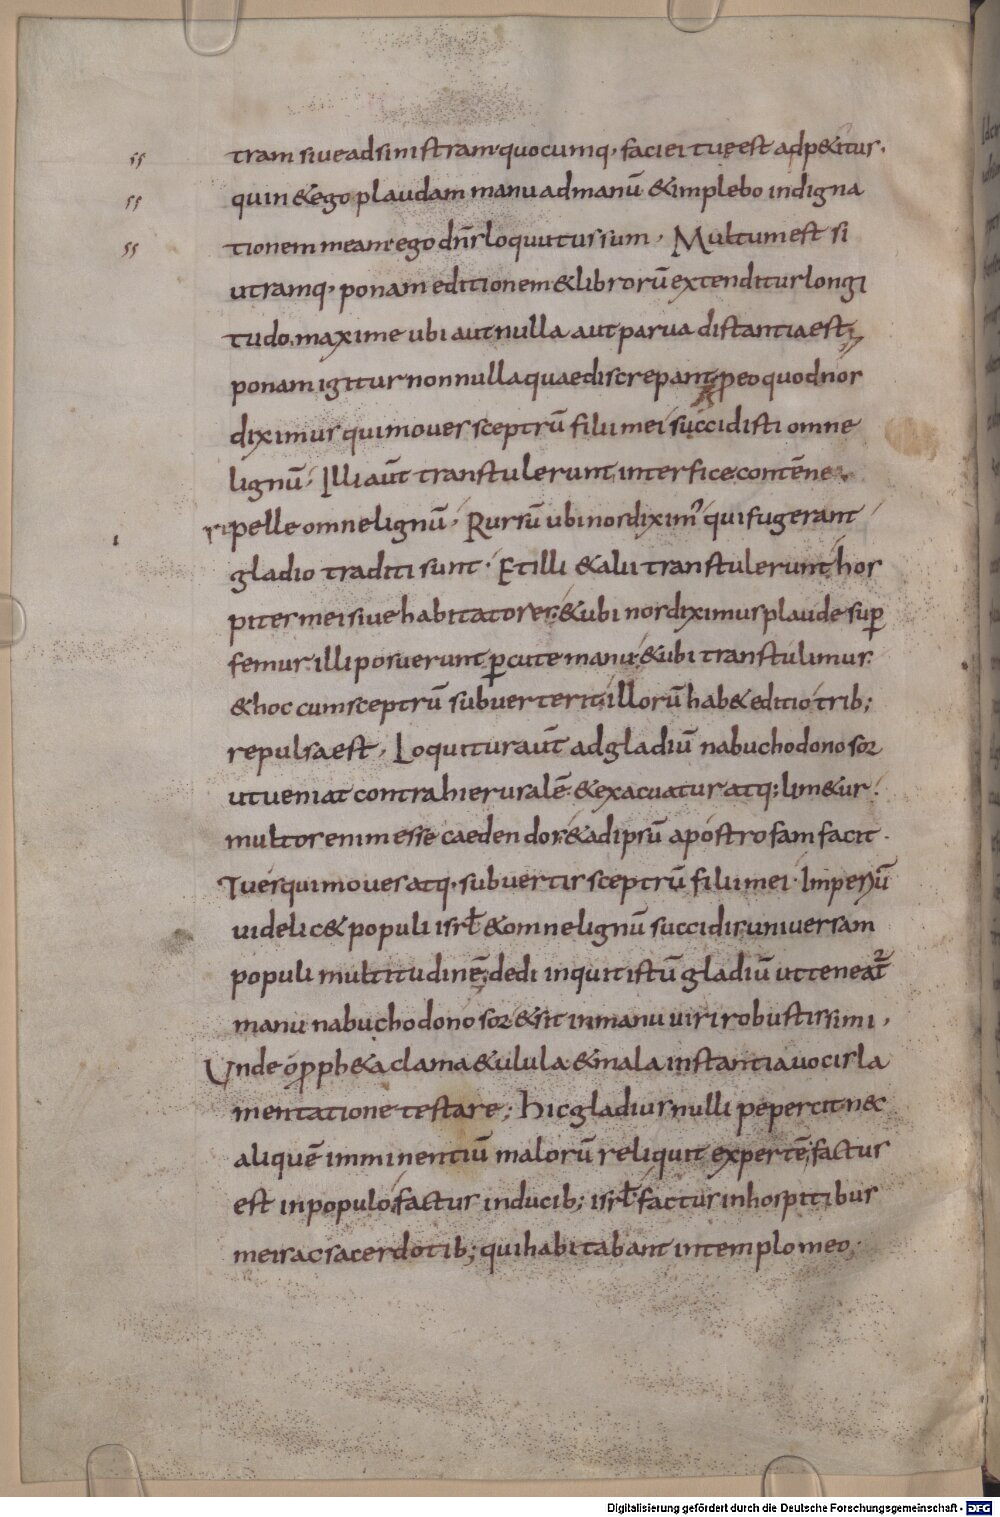 tram siue ad sinistram quocumq; faciei tuę est adp&itus.
quin & ego plaudam manu ad manū & implebo indigna
tionem meam ego dn̄s loquutus sum. Multum est si
utramq; ponam editionem & librorū extenditur longi
tudo. maxime ubi aut nulla aut parua distantia est;
ponam igitur nonnulla quae discrepant, pro eo quod nos
diximus qui moues sceptrū filii mei succidisti omne
lignū. Illi aūt transtulerunt interfice contēne
repelle omne lignū. Rursū ubi nos diximꝰ qui fugerant
gladio traditi sunt. Et illi & alii transtulerunt hos
pites mei siue habitatores. & ubi nos diximus plaude suꝑ
femur. illi posuerunt ꝑcute manu. & ubi transtulimus.
& hoc cum sceptrū subuerterit, illorū hab& editio trib;
repulsa est. Loquitur aūt ad gladiū nabuchodonosor
ut ueniat contra hierusalē. & exacuatur atq; lim&ur.
multos enim esse caedendos. & ad ipsū apostrofam facit.
Tu es qui moues atq; subuertis sceptrū filii mei. Imperiū
uidelic& populi isrl̄ & omne lignū succidis. uniuersam
populi multitudinē. dedi inquit istū gladiū ut teneat̄
manu nabuchodonosor & sit in manu uiri robustissimi,
Unde o proph&a clama & ulula & mala instantia uocis la
mentatione testare; hic gladius nulli pepercit nec
aliquē imminentiū malorū reliquit expertē, factus
est in populo. factus in ducib; isrl̄. factus in hospitibus
meis ac sacerdotib; qui habitabant in templo meo.
Digitalisierung gefördert durch die Deutsche Forschungsgemeinschaft - DFG